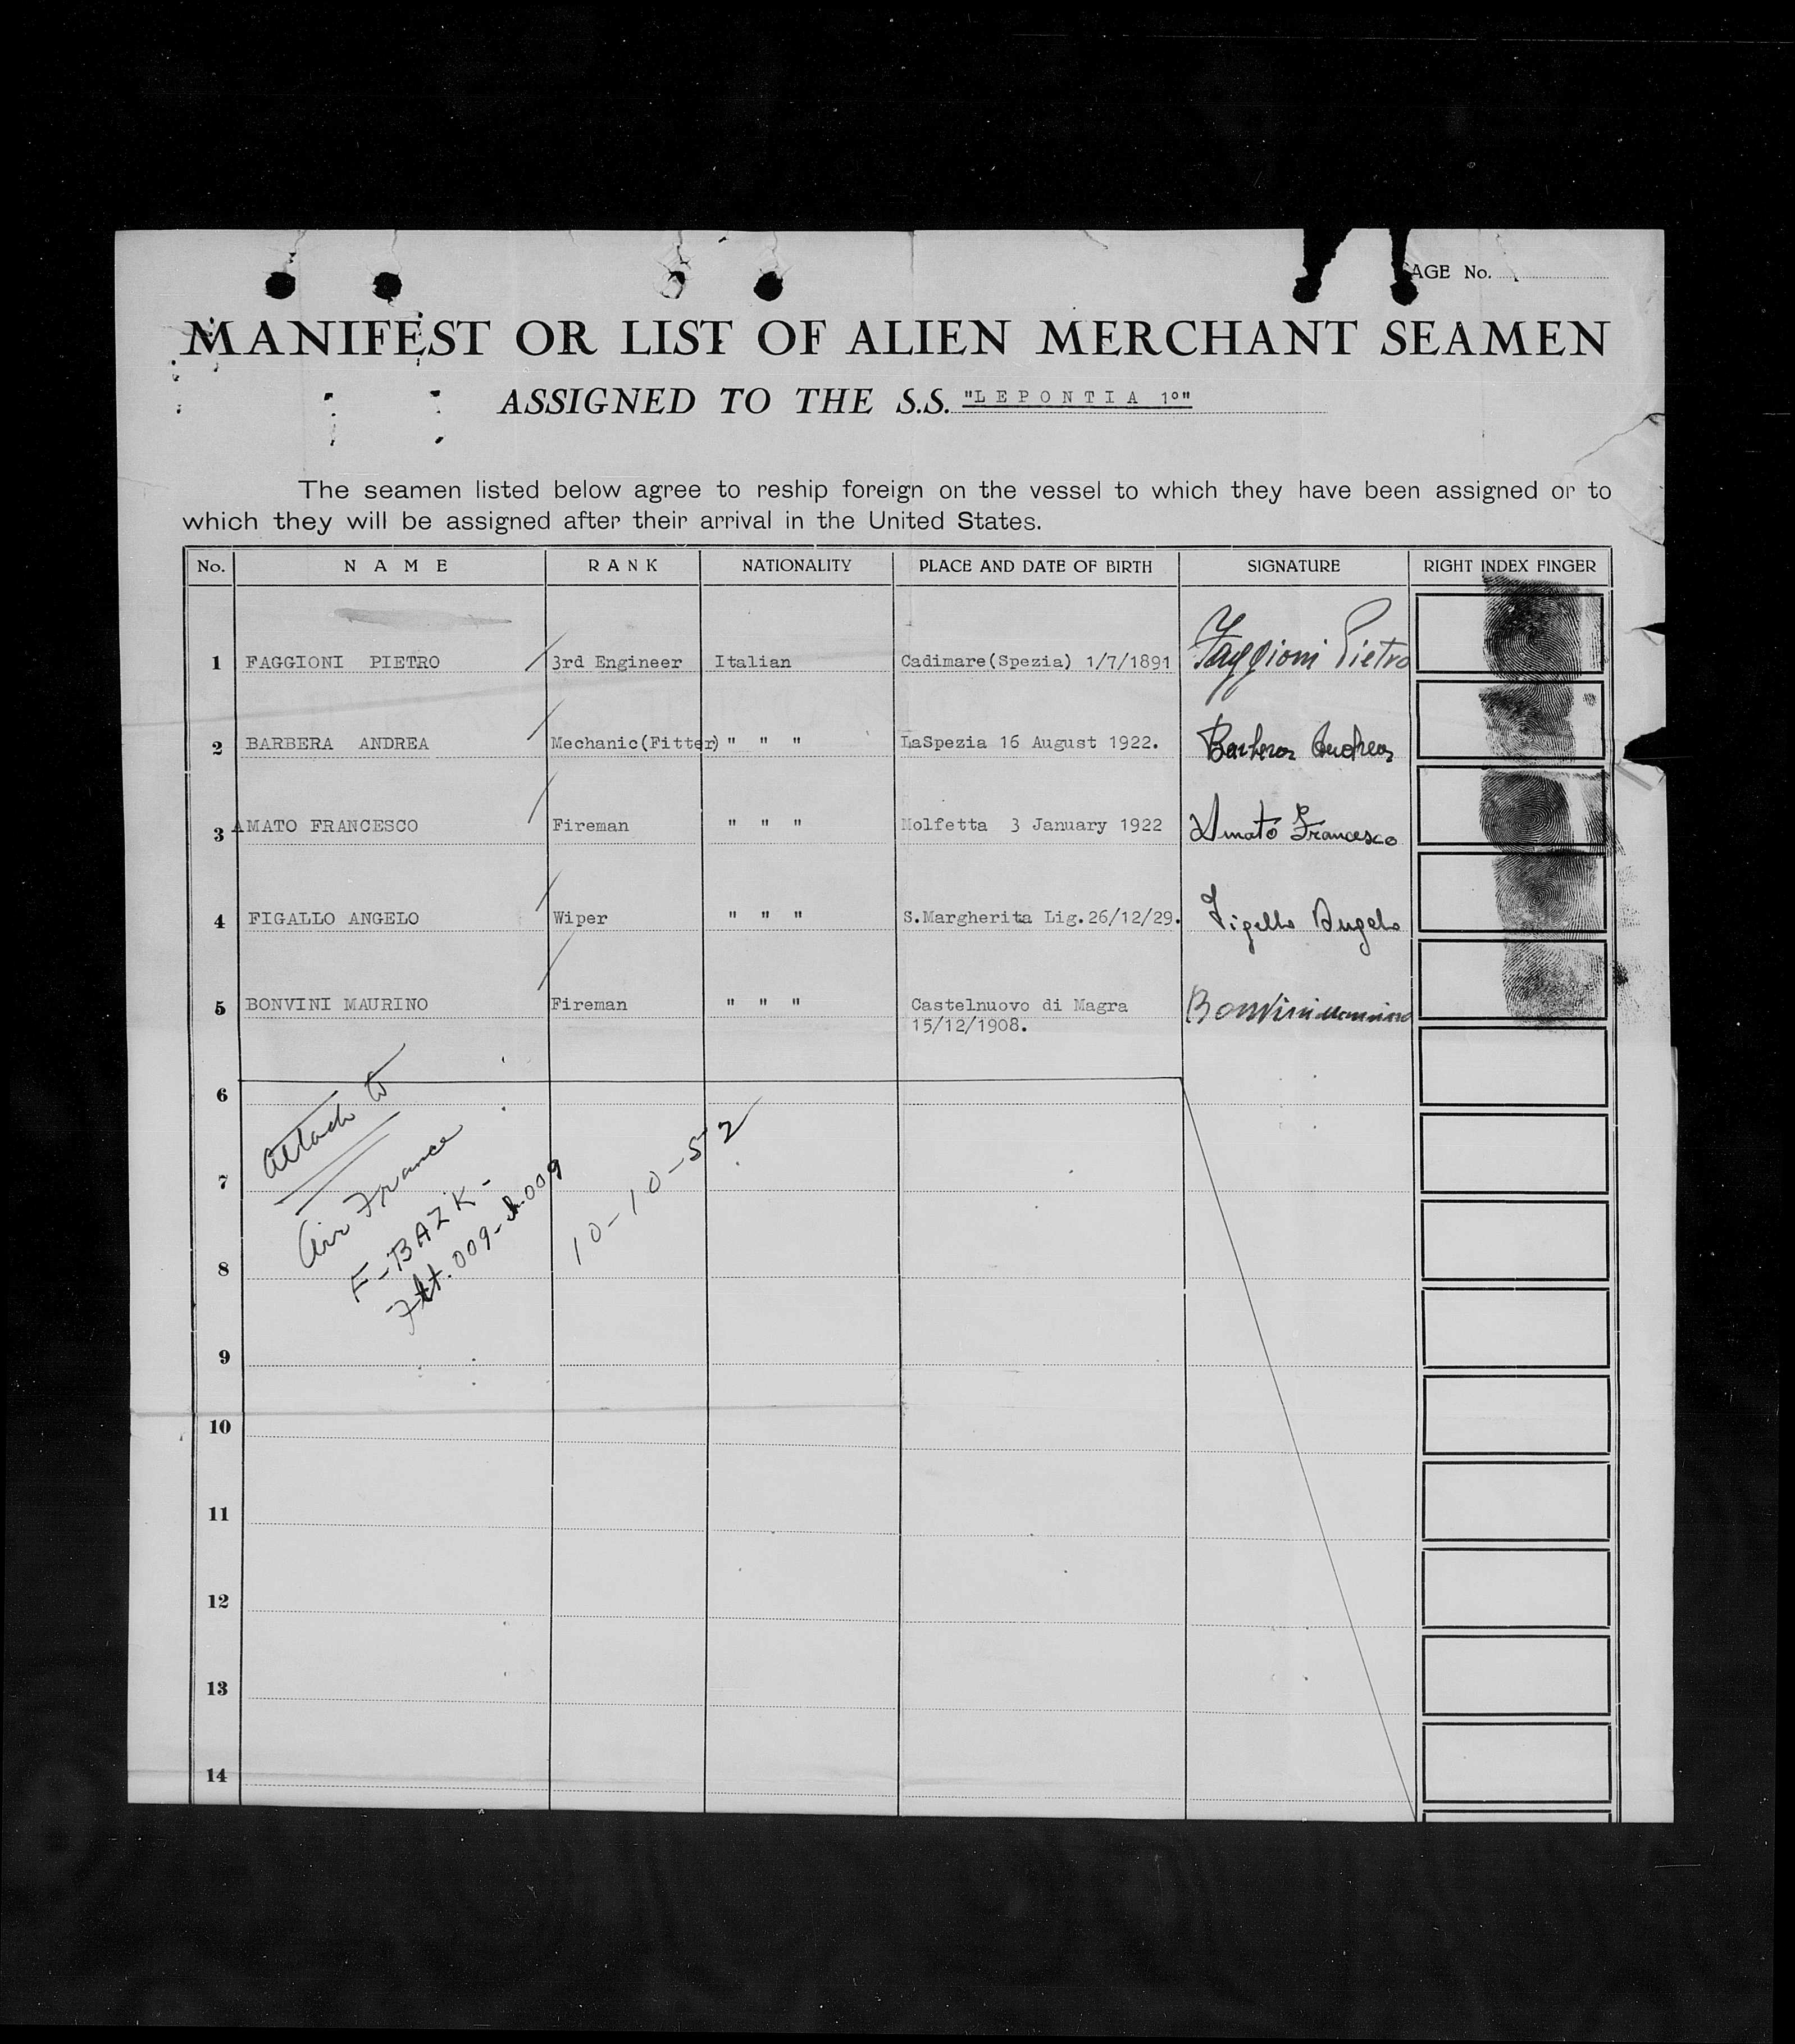 AGE No.
MANIFEST OR LIST OF ALIEN MERCHANT SEAMEN
ASSIGNED TO THE S.S. "LEPONTIA 1º"
The seamen listed below agree to reship foreign on the vessel to which they have been assigned or to
which they will be assigned after their arrival in the United States.
No. NAME RANK NATIONALITY PLACE AND DATE OF BIRTH SIGNATURE RIGHT INDEX FINGER
1 FAGGIONI PIETRO 3rd Engineer Italian Cadimare(Spezia) 1/7/1891 Faggioni Pietro
2 BARBERA ANDREA Mechanic(Fitter) " " " LaSpezia 16 August 1922. Barbera Andrea
3 AMATO FRANCESCO Fireman " " " Molfetta 3 January 1922 Amato Francesco
4 FIGALLO ANGELO Wiper " " " S.Margherita Lig.26/12/29. Figallo Angelo
5 BONVINI MAURINO Fireman " " " Castelnuovo di Magra Bonvini Maurino
15/12/1908.
6
7
8
9
10
11
12
13
14
Attach to
Air France
F-BAZK-
Flt. 009-
10-10-52